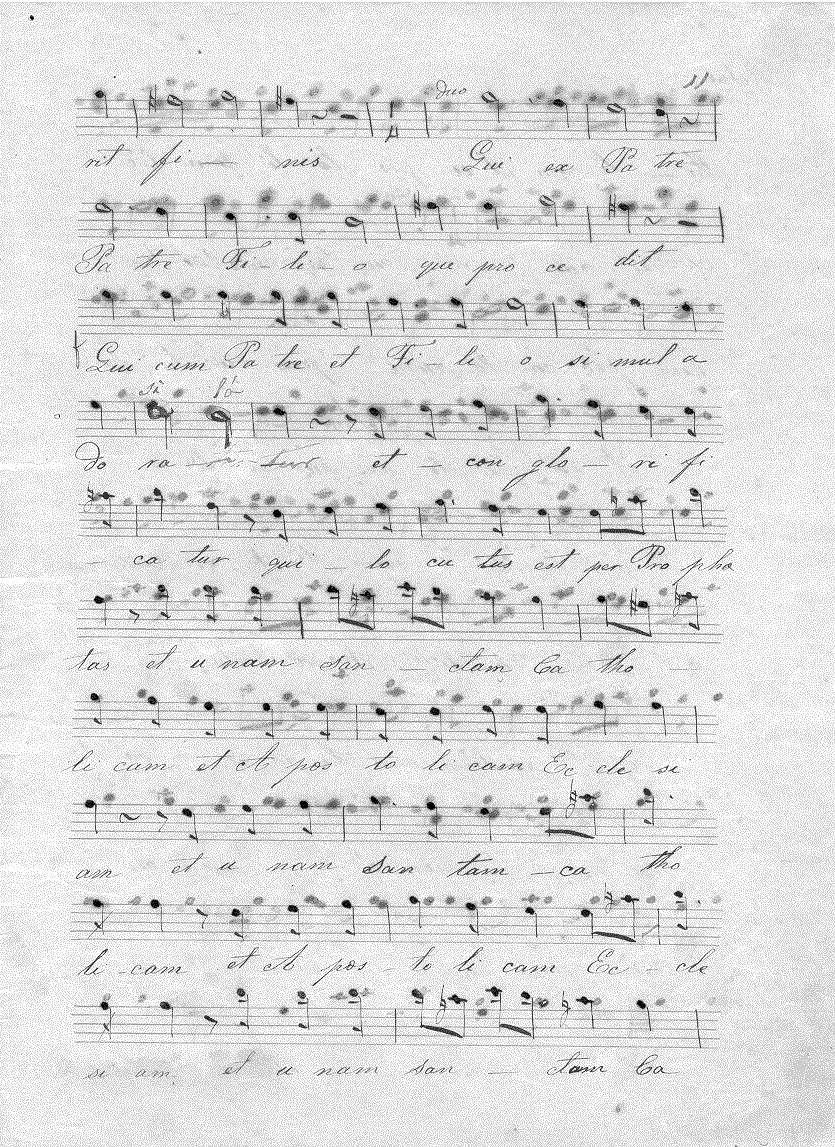 11
duo
rit fi — nis Qui ex Pa tre
Pa tre Fi - li - o que pro ce dit
Qui cum Pa tre et Fi - li o si mul a
do ra et - con glo - ri fi
- ca tur qui - lo cu tus est per Pro phe
tas et u nam San - ctam Ca tho
li cam et A pos to li cam Ec cle si
am et u nam San tam - ca tho
li - cam et A pos - to li cam Ec - cle
si am et u nam san - ctam Ca